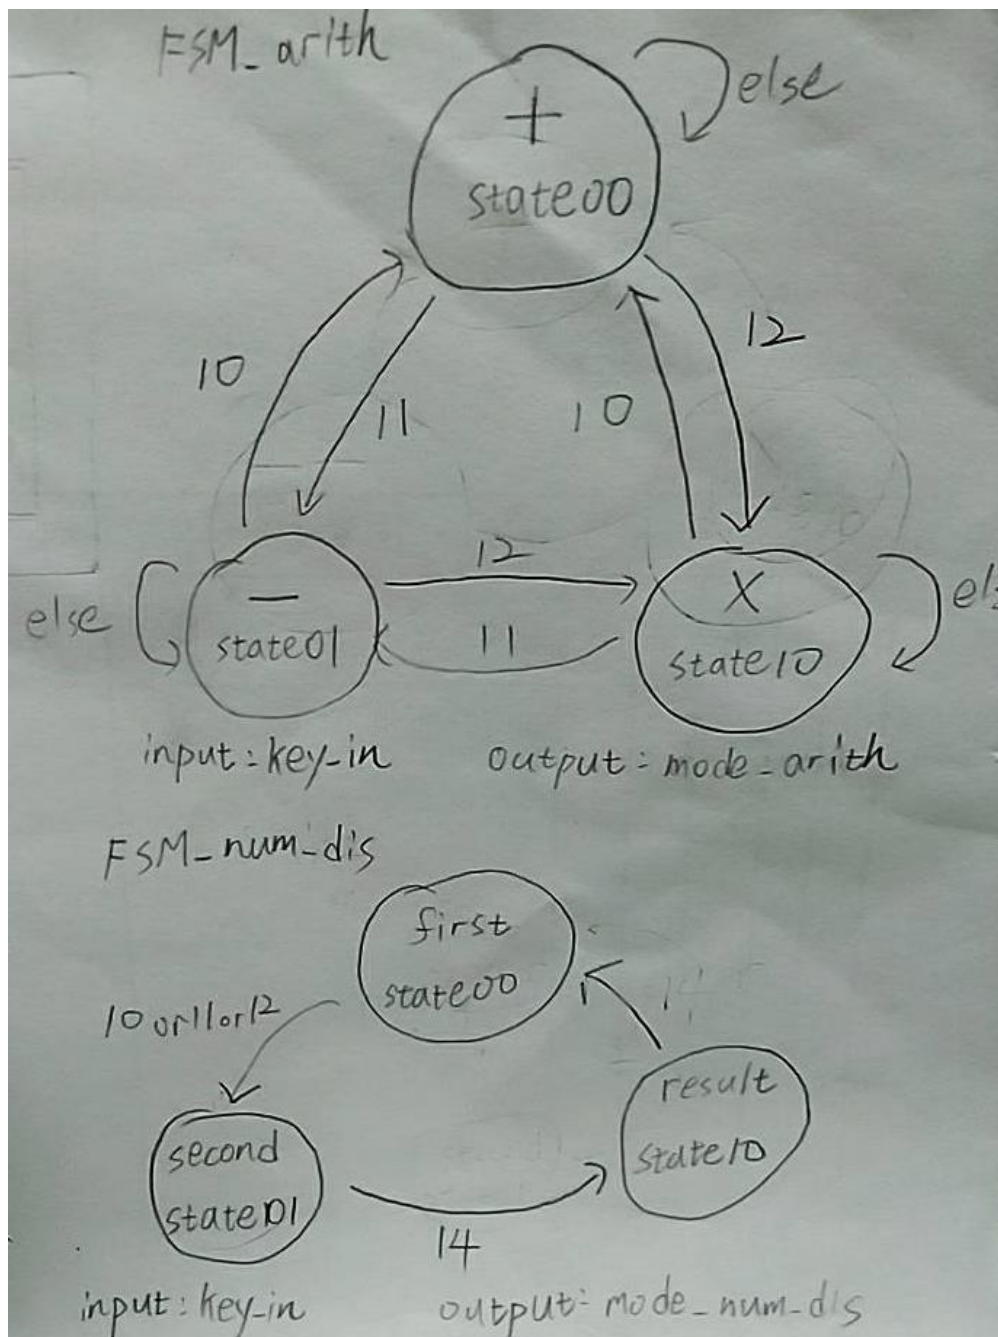 FSM_arith
else
+
state00
10
11
10
12
12
11
else
−
state01
X
state10
input:key_in
output:mode_arith
FSM_num_dis
first
state00
10 or 11 or 12
result
state10
second
state01
14
input:key_in
output:mode_num_dis